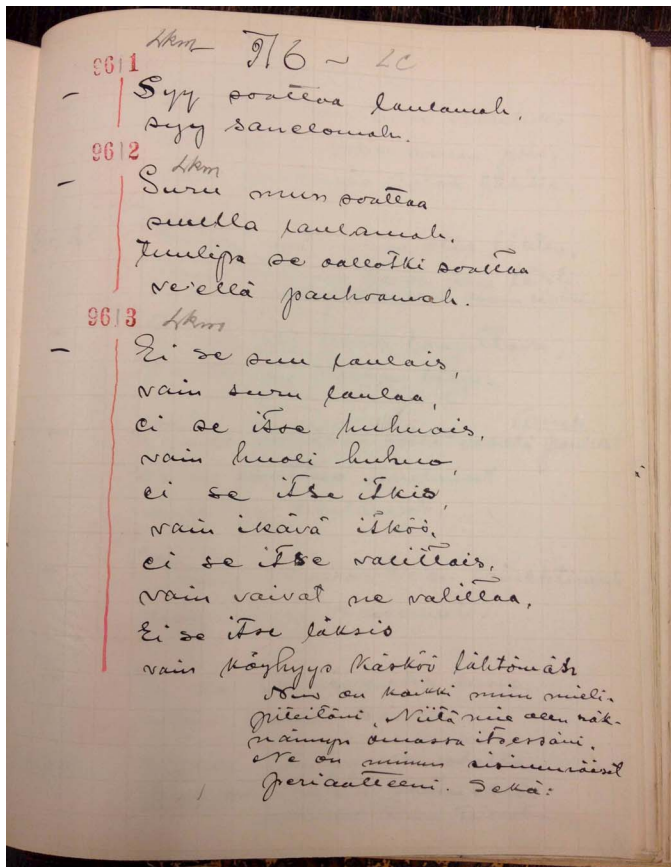 Lkm
96|1
Syy soattaa laulamah,
syy sanelomah.
Lkm
96|2
Suru mun soattaa
suulla laulamah.
tuulipa se oallotki soattaa
ve'ellä pauhoamah.
96|3 Lkm
Ei se suu laulais,
vain suru laulaa,
ei se itse huhuois,
vain huoli huhuo,
ei se itse itkis,
vain ikävä itköö,
ei se itse valittais,
vain vaivat ne valittaa,
Ei se itse läksis
vain köyhyys käsköö lähtömäh
on kaikki miun mieli-
piteitäni. Niitä mie olen näk-
nännyn omassa itsessäni.
Ne on minun sisimmäiset
periaatteeni. Sekä: